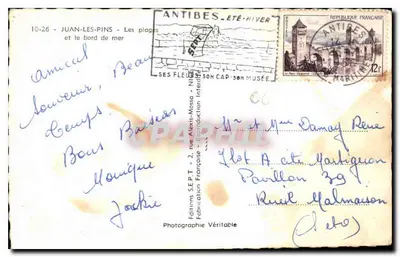 10-26 - JUAN-LES-PINS - Les plages
et le bord de mer
ANTIBES - ÉTÉ-HIVER
SES FLEURS SON CAP SON MUSÉE
REPUBLIQUE FRANÇAISE
ANTIBES
12F
Amical
Souvenir, Beau
Temps.
Bons Baisers
Monique
Jackie
Editions S.E.P.T - 2, rue Alexis-Mossa - Nice
Fabrication Française - Reproduction Interdite
Mr et Mme Damay René
Ilot A ate Martignon
Pavillon 39
Rueil Malmaison
(S et O)
Photographie Véritable